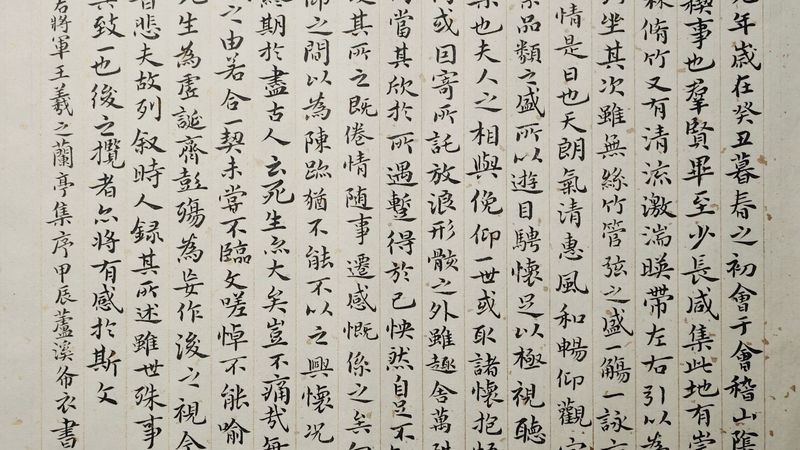 年歲在癸丑暮春之初會于會稽山陰
禊事也羣賢畢至少長咸集此地有崇
林脩竹又有清流激湍暎帶左右引以為
坐其次雖無絲竹管弦之盛一觴一詠
情是日也天朗氣清惠風和暢仰觀
品類之盛所以遊目騁懷足以極視聽
樂也夫人之相與俛仰一世或取諸懷抱
或因寄所託放浪形骸之外雖趣舍萬殊
當其欣於所遇蹔得於己怏然自足不
其所之既倦情隨事遷感慨係之矣
仰之間以為陳跡猶不能不以之興懷況
終期於盡古人云死生亦大矣豈不痛哉每
之由若合一契未嘗不臨文嗟悼不能喻
死生為虛誕齊彭殤為妄作後之視今
悲夫故列敘時人録其所述雖世殊事
其致一也後之攬者亦將有感於斯文
右將軍王羲之蘭亭集序甲辰蘆溪布衣書